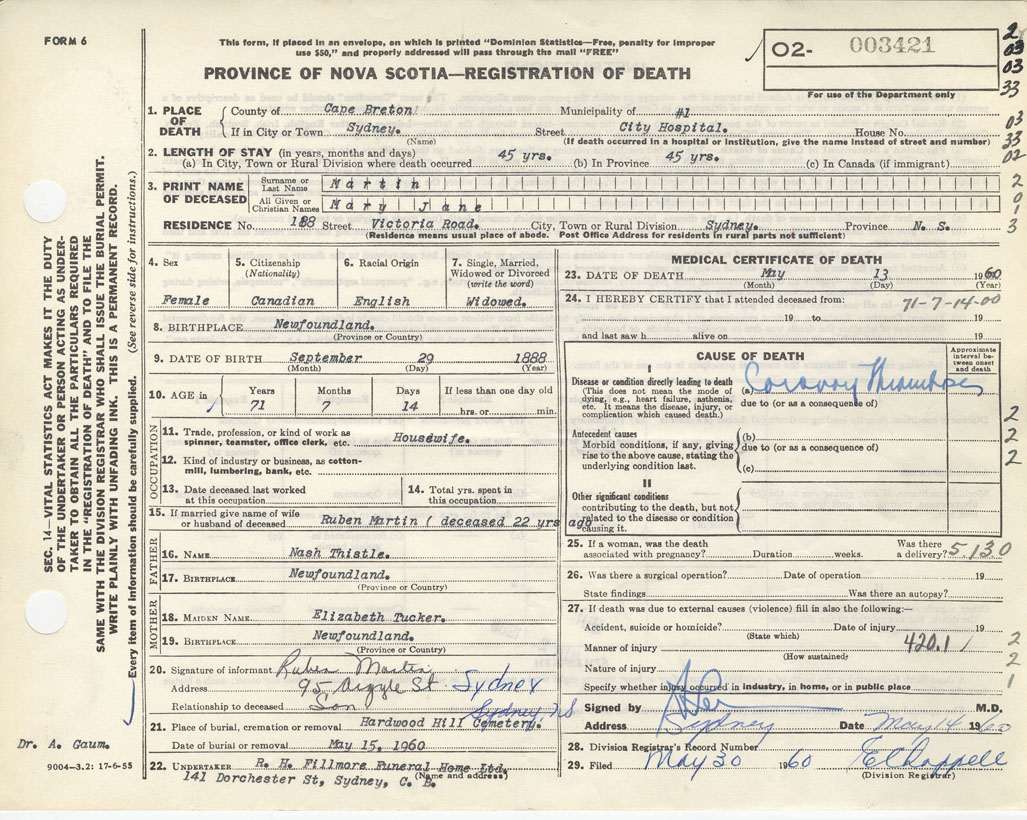 FORM 6
This form, if placed in an envelope, on which is printed "Dominion Statistics—Free, penalty for improper
use $50," and properly addressed will pass through the mail "FREE"
PROVINCE OF NOVA SCOTIA—REGISTRATION OF DEATH
02- 003421
For use of the Department only
2
03
03
33
03
33
02
2
0
1
3
1. PLACE OF DEATH
County of Cape Breton Municipality of #1
If in City or Town Sydney. Street City Hospital. House No.
(Name) (If death occurred in a hospital or institution, give the name instead of street and number)
2. LENGTH OF STAY (in years, months and days)
(a) In City, Town or Rural Division where death occurred 45 yrs. (b) In Province 45 yrs. (c) In Canada (if immigrant)
3. PRINT NAME OF DECEASED
Surname or Last Name Martin
All Given or Christian Names Mary Jane
RESIDENCE No. 188 Street Victoria Road. City, Town or Rural Division Sydney. Province N. S.
(Residence means usual place of abode. Post Office Address for residents in rural parts not sufficient)
4. Sex
Female
5. Citizenship
(Nationality)
Canadian
6. Racial Origin
English
7. Single, Married,
Widowed or Divorced
(write the word)
Widowed.
8. BIRTHPLACE Newfoundland.
(Province or Country)
9. DATE OF BIRTH September 29 1888
(Month) (Day) (Year)
10. AGE in
Years Months Days If less than one day old
71 7 14 hrs. or min.
OCCUPATION
11. Trade, profession or kind of work as
spinner, teamster, office clerk, etc. Housewife.
12. Kind of industry or business, as cotton-
mill, lumbering, bank, etc.
13. Date deceased last worked
at this occupation
14. Total yrs. spent in
this occupation
15. If married give name of wife
or husband of deceased Ruben Martin ( deceased 22 yrs ago
FATHER
16. NAME Nash Thistle.
17. BIRTHPLACE Newfoundland.
(Province or Country)
MOTHER
18. MAIDEN NAME Elizabeth Tucker.
19. BIRTHPLACE Newfoundland.
(Province or Country)
20. Signature of informant Ruben Martin
Address 95 Argyle St Sydney
Relationship to deceased Son Sydney, NS
21. Place of burial, cremation or removal Hardwood Hill Cemetery.
Date of burial or removal May 15, 1960
22. UNDERTAKER R. H. Fillmore Funeral Home Ltd.
(Name and address)
141 Dorchester St, Sydney, C. B.
MEDICAL CERTIFICATE OF DEATH
23. DATE OF DEATH May 13 1960
(Month) (Day) (Year)
24. I HEREBY CERTIFY that I attended deceased from:
71-7-14-00
19 to 19
and last saw h alive on 19
CAUSE OF DEATH
Approximate interval between onset and death
I
Disease or condition directly leading to death
(This does not mean the mode of
dying, e.g., heart failure, asthenia,
etc. It means the disease, injury, or
complication which caused death.)
(a) Coronary Thrombosis
due to (or as a consequence of)
Antecedent causes
Morbid conditions, if any, giving
rise to the above cause, stating the
underlying condition last.
(b)
due to (or as a consequence of)
(c)
II
Other significant conditions
contributing to the death, but not
related to the disease or condition
causing it.
2
2
2
25. If a woman, was the death
associated with pregnancy? Duration weeks. Was there
a delivery? 5130
26. Was there a surgical operation? Date of operation 19
State findings Was there an autopsy?
27. If death was due to external causes (violence) fill in also the following:—
Accident, suicide or homicide? Date of injury 19
(State which)
Manner of injury 420.1
(How sustained)
Nature of injury
Specify whether injury occurred in industry, in home, or in public place
2
2
1
Signed by M.D.
Address Sydney Date May 14 1960
28. Division Registrar's Record Number
29. Filed May 30 1960
(Division Registrar)
SEC. 14—VITAL STATISTICS ACT MAKES IT THE DUTY
OF THE UNDERTAKER OR PERSON ACTING AS UNDER-
TAKER TO OBTAIN ALL THE PARTICULARS REQUIRED
IN THE "REGISTRATION OF DEATH" AND TO FILE THE
SAME WITH THE DIVISION REGISTRAR WHO SHALL ISSUE THE BURIAL PERMIT.
WRITE PLAINLY WITH UNFADING INK. THIS IS A PERMANENT RECORD.
Every item of information should be carefully supplied. (See reverse side for instructions.)
Dr. A. Gaum.
9004-3.2: 17-6-55